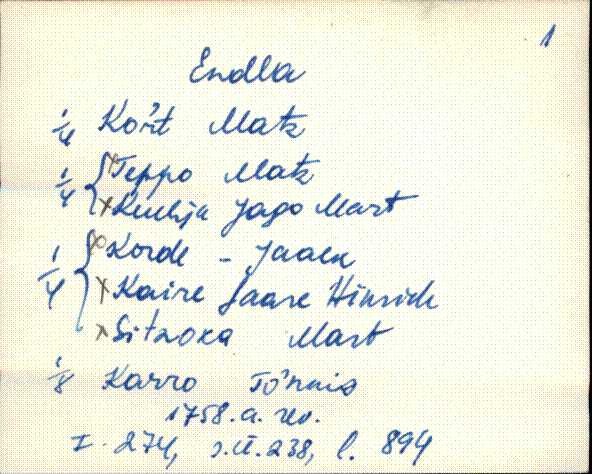 1
Endla
1/4 Kõrt Matz
1/4 x Teppo Matz
x Jago Mart
1/4 x Korde - Jaack
x Kaire Jaare Hinrich
x Mart
1/8 Karro Tõnnis
1758.a. rev.
I. 274, s.ü. 238, l. 894